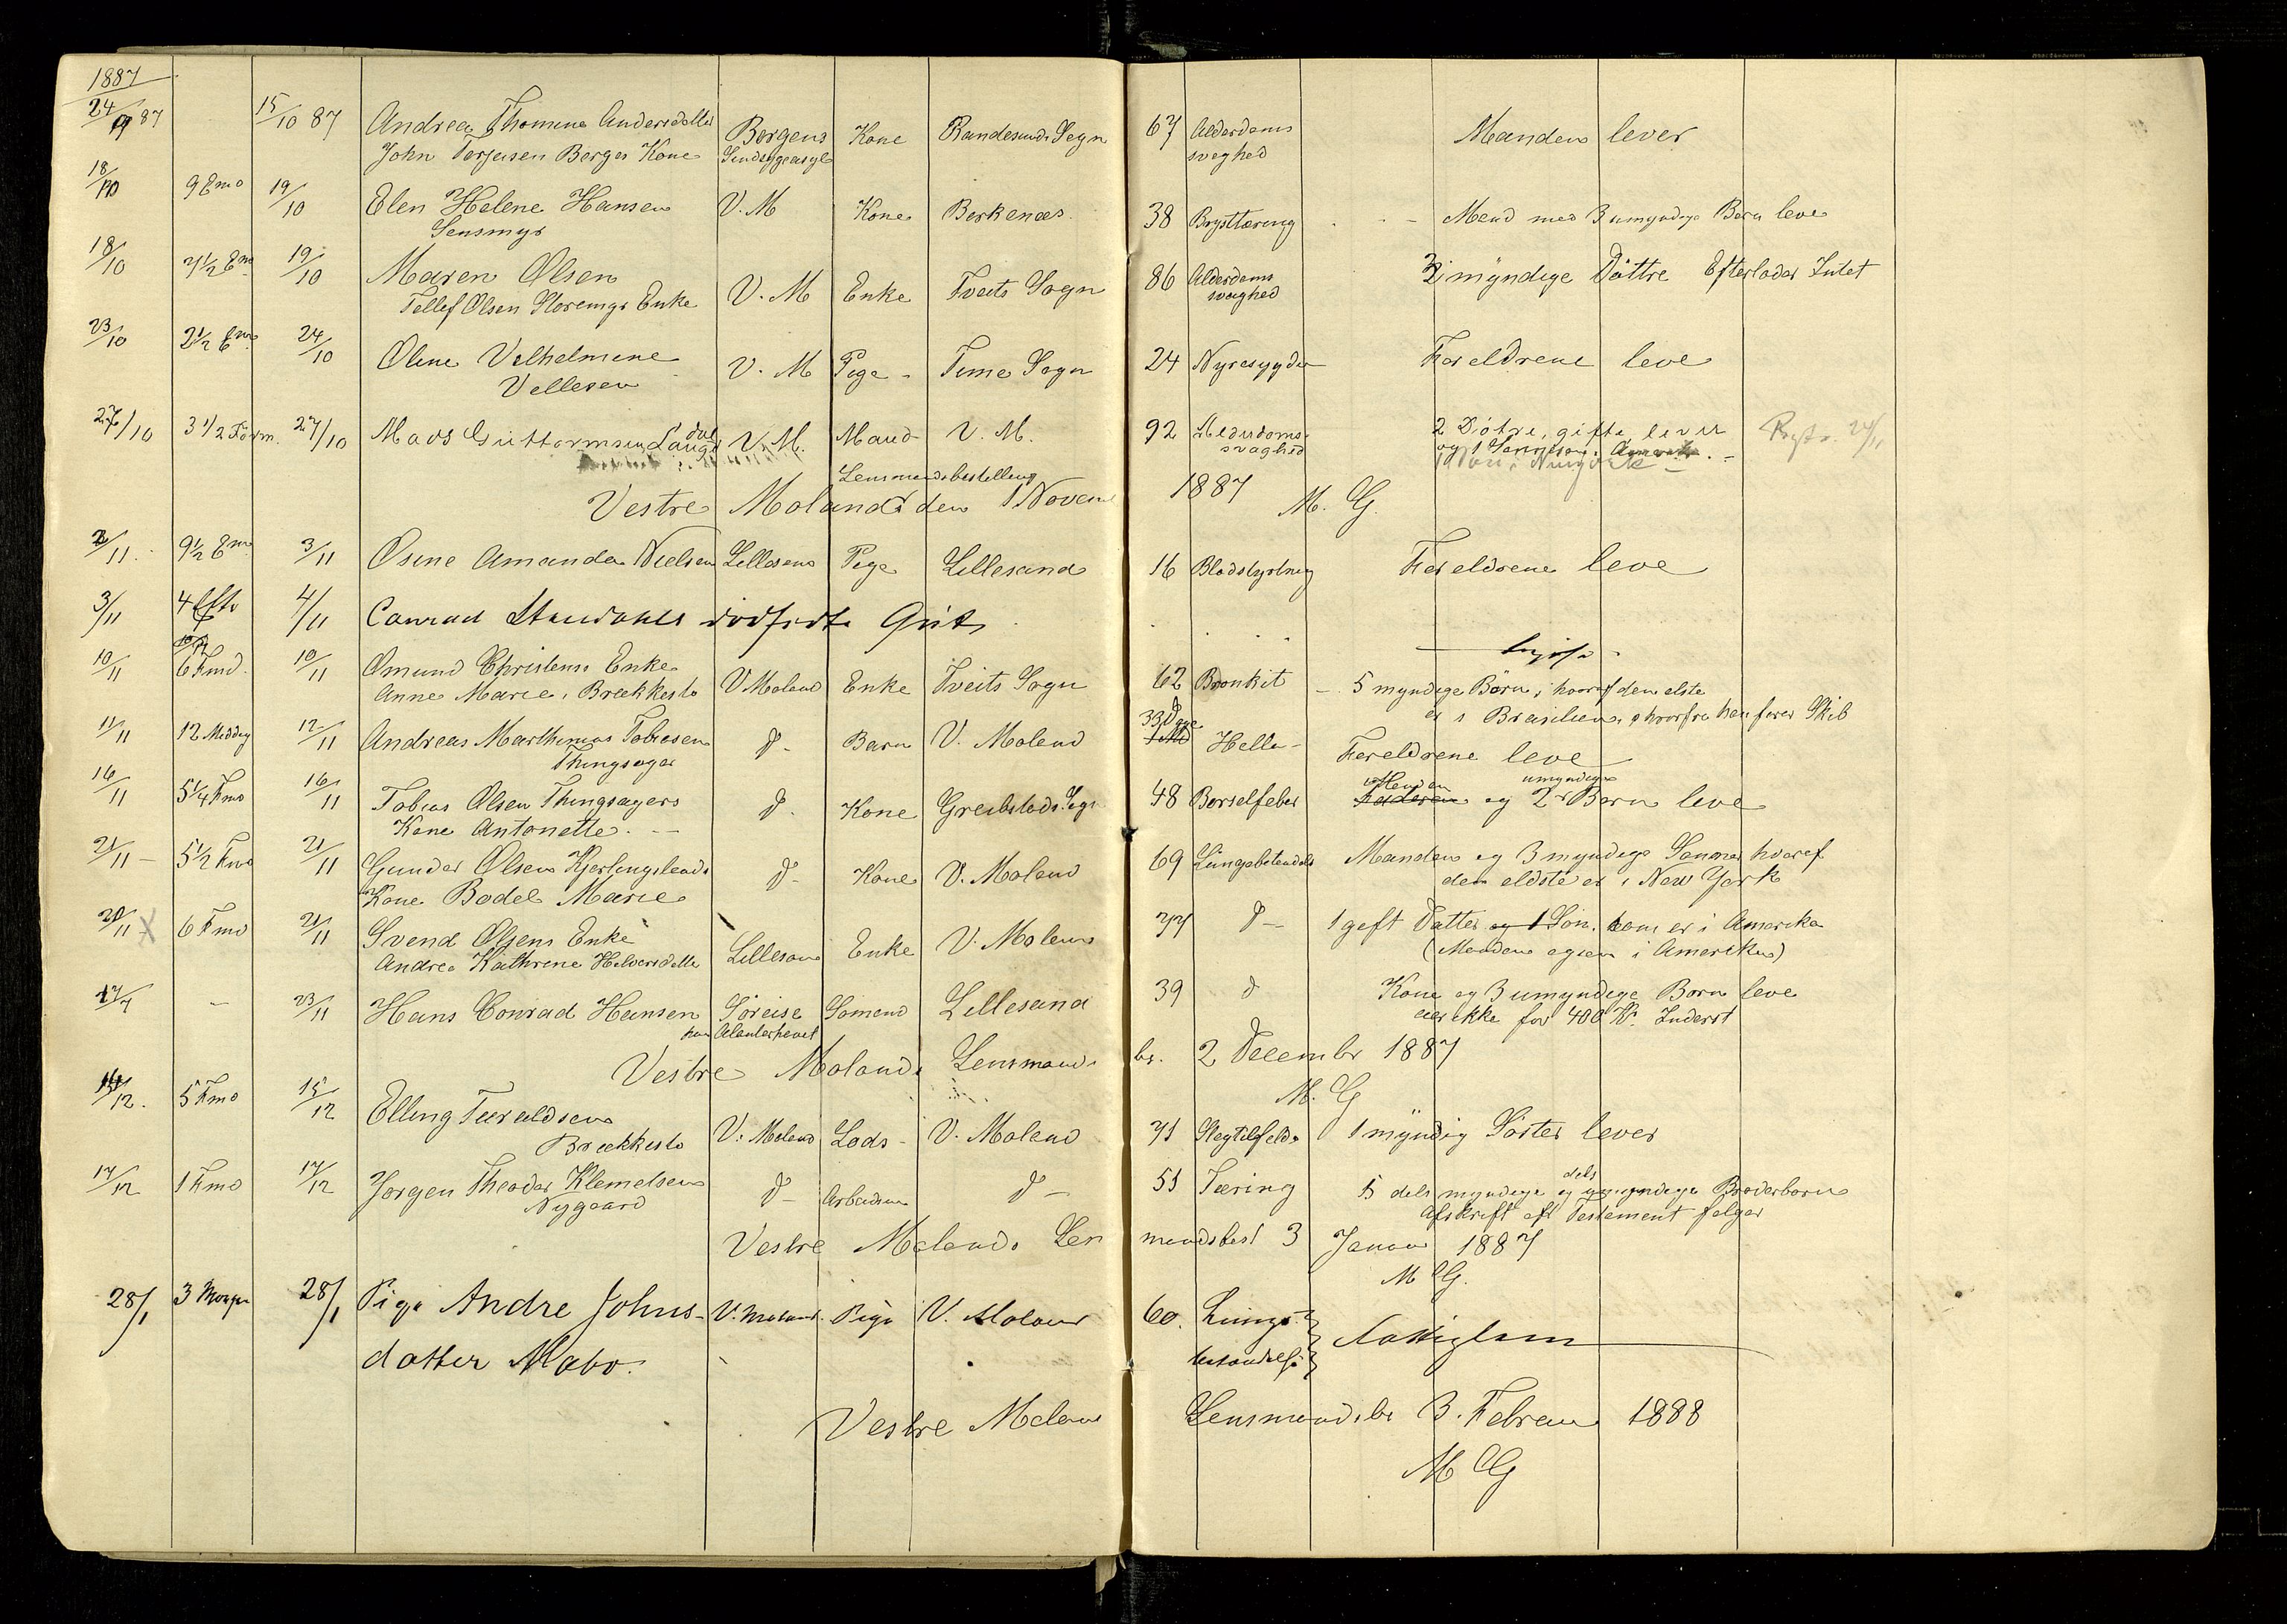 1887
24/9 87 15/10 87 Andrea Thomine Andersdatter Bergens Kone Randesunds Sogn 67 Alderdoms Manden lever
John Terjesen Berges Kone Sindsygeasyl svaghed
18/10 9 Emd 19/10 Elen Helene Hansen V. M Kone Berkenæs 38 Brysttæring Mand med 3 umyndige Børn leve
18/10 7½ Em 19/10 Maren Olsen V. M Enke Tveits Sogn 86 Alderdoms myndige Döttre Efterlader Intet
Tellef Olsen Enke svaghed
23/10 2½ Em 24/10 Oline Vilhelmine V. M Pige Sogn 24 Nyresygdom Foreldrene leve
Vellesen
27/10 3 1/2 Form. 27/10 Mads Guttormsen V. M. Mand V. M. 92 Alderdoms 2 Döttre, gifte lever
svaghed og 1
Lensmandsbestilling
Vestre Molands den 1 Novem 1887 M. G.
2/11 9½ Em 3/11 Osine Amanda Nielsen Lillesand Pige Lillesand 16 Blodstyrtning Foreldrene leve
3/11 4 Eft 4/11 Conrad dødfødte Gut
10/11 6 Fmd. 10/11 Omund Christens Enke V Moland Enke Tveits Sogn 62 Bronkit 5 myndige Börn, hvoraf den elste
Anne Marie, Brækkestö er i Brasilien, hvorfra han farer Skib
11/11 12 Middag 12/11 Andreas Marthinius Tobiesen d- Barn V. Moland 33 Dge Foreldrene leve
Thingsager
16/11 5¼ Fmd 16/11 Tobias Olsen Thingsagers d. Kone Sogn 48 Barselfeber Manden og 2 umyndige Børn leve
Kone Antonette
21/11 5½ Fmd 21/11 Gunder Olsen Kjerlingslands d- Kone V. Moland 69 Lungebetændels Manden og 3 myndige Sønner hvoraf
Kone Bodel Marie den eldste er i New York
20/11 6 Fmd 21/11 Svend Olsens Enke Lillesand Enke V. Moland 77 d- 1 gift Datter og 1 Sön. som er i Amerika
Andrea Kathrine (Manden ogsaa i Amerika)
17/7 - 23/11 Hans Conrad Hansen Söreise Sömand Lillesand 39 d Kone og 3 umyndige Børn leve
paa Atlanterhavet eier ikke for 400 Kr. Inderst
Vestre Molands Lensmands bs. 2 Decembr 1887
M. G
14/12. 5 Fmd 15/12 Elling Taraldsen V. Moland Lods V. Moland 71 Slagtilfelde 1 myndig Söster lever
Brækkestö
17/12 1 Fmd 17/12 Jørgen Theodor Klemetsen d- Arbeidsm d- 51 Tæring 5 dels myndige og dels umyndige Broderbørn
Nygaard Afskrift af Testament følger
Vestre Molands Lensmandsbest 3 Januar 1887
M G.
28/1 3 Morgen 28/1 Pige Andre Johns- V. Moland. Pige V. Moland 60. Lunge- Fattiglem
datter Mabo. betændelse
Vestre Moland Lensmandsbs 3. Februar 1888
M G